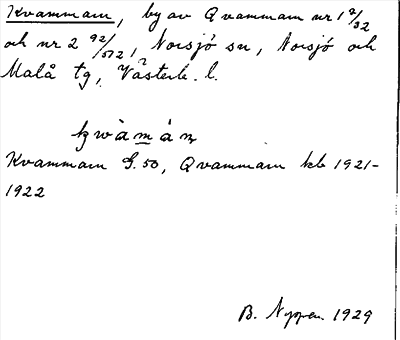 Kvammarn, by av Qvammarn nr 1 2/32
och nr 2 92/572, Norsjö sn, Norsjö och
Malå tg, Västerb. l.
kwàmáɳ
Kvammarn G. 50, Qvammarn kb 1921-
1922
B. Nyppen 1929